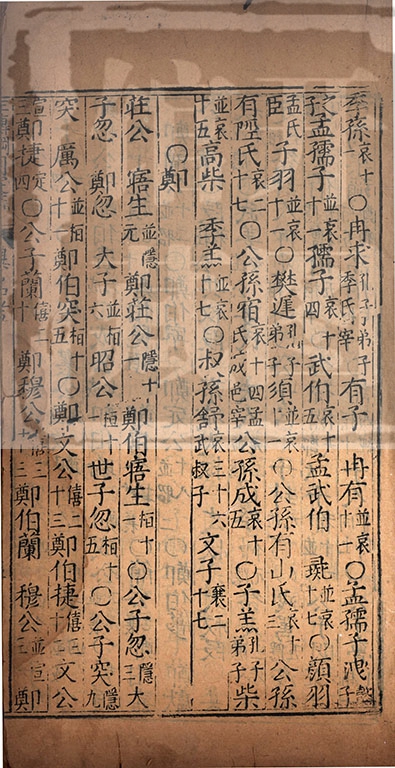 季孫哀十一○冉求孔子弟子季氏宰 有子 冉有並哀十一○孟孺子洩懿子
之子孟孺子並哀十一孺子哀十四武伯哀十五孟武伯 彘並哀十七○顏羽
孟氏臣子羽並哀十一○樊遲孔子弟子須並哀十一○公孫有山氏哀十三公孫
有陘氏哀二十○公孫宿孟氏成邑宰哀十四公孫成哀十五○子羔孔子弟子柴
並哀十五高柴 季羔十七○叔孫舒哀二十六武叔子文子二十七
○鄭
莊公 寤生並隱元鄭莊公隱十一鄭伯寤生桓十一○公子忽隱三大
子忽 鄭忽 大子並桓六昭公桓十一世子忽桓十五○公子突隱九
突 厲公並桓十一鄭伯突桓十五○鄭文公僖二十三鄭伯捷僖三十二文公
宣三鄭捷定四○公子蘭僖三十鄭穆公僖三十三鄭伯蘭 穆公並宣三鄭